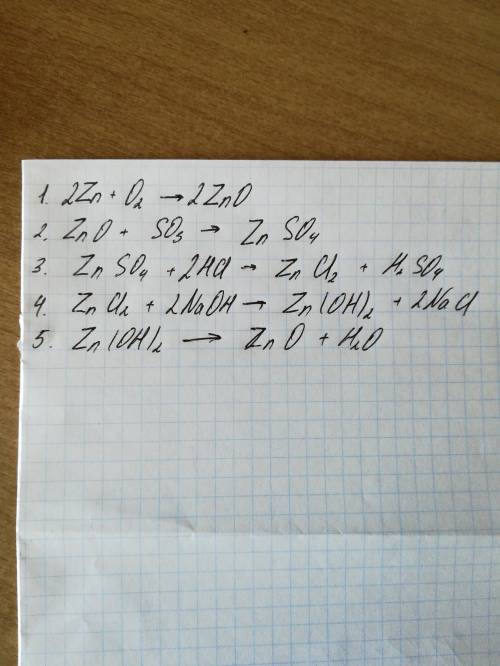 1. 2Zn + O₂ → 2ZnO
2. ZnO + SO₃ → ZnSO₄
3. ZnSO₄ + 2HCl → ZnCl₂ + H₂SO₄
4. ZnCl₂ + 2NaOH → Zn(OH)₂ + 2NaCl
5. Zn(OH)₂ → ZnO + H₂O